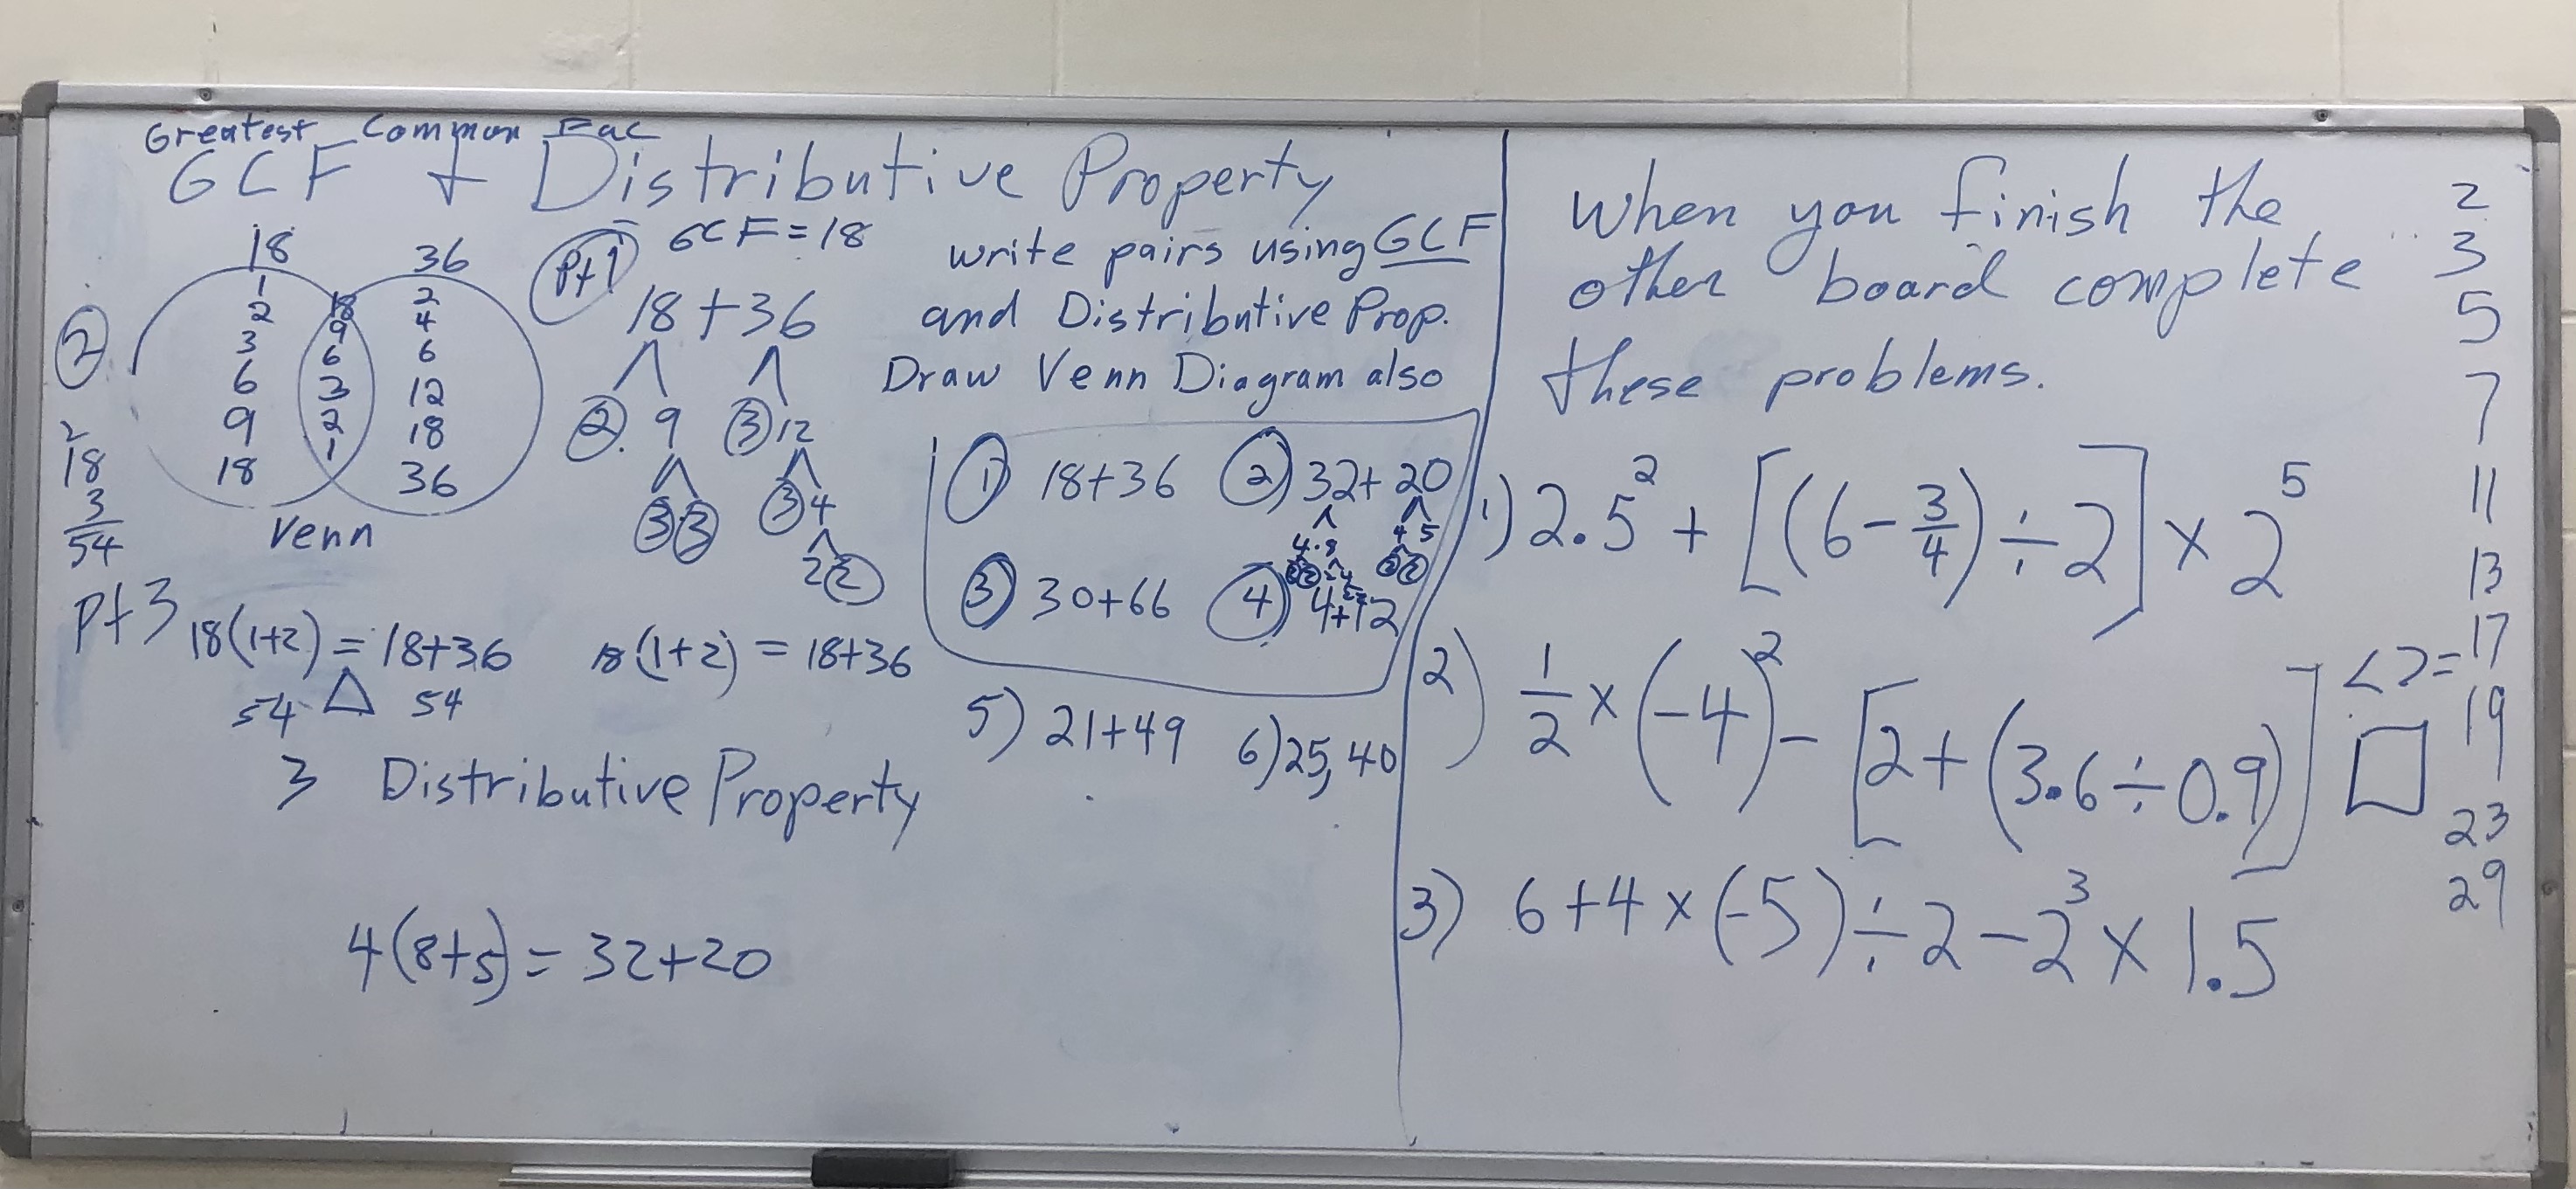 Greatest Common Fac
GCF + Distributive Property
GCF = 18
18 36
1
2
3
6
9
18
18
9
6
3
2
1
2
4
6
12
18
36
Venn
2
2
18
3
54
Pt 1
18+36
2 9 3 12
3 3 3 4
2 2
write pairs using GCF
and Distributive Prop.
Draw Venn Diagram also
1 18+36 2) 32+20
4·8 4 5
2 2 2 4 2 2
2 2
3 30+66 4) 4+12
5) 21+49 6) 25, 40
Pt 3
18(1+2) = 18+36 18(1+2) = 18+36
54 △ 54
3 Distributive Property
4(8+5) = 32+20
When you finish the
other board complete
these problems.
1) 2.5² + [(6 - 3/4) ÷ 2] × 2⁵
2) 1/2 × (-4)² - [2 + (3.6 ÷ 0.9)]
3) 6 + 4 × (-5) ÷ 2 - 2³ × 1.5
< > =
2
3
5
7
11
13
17
19
23
29